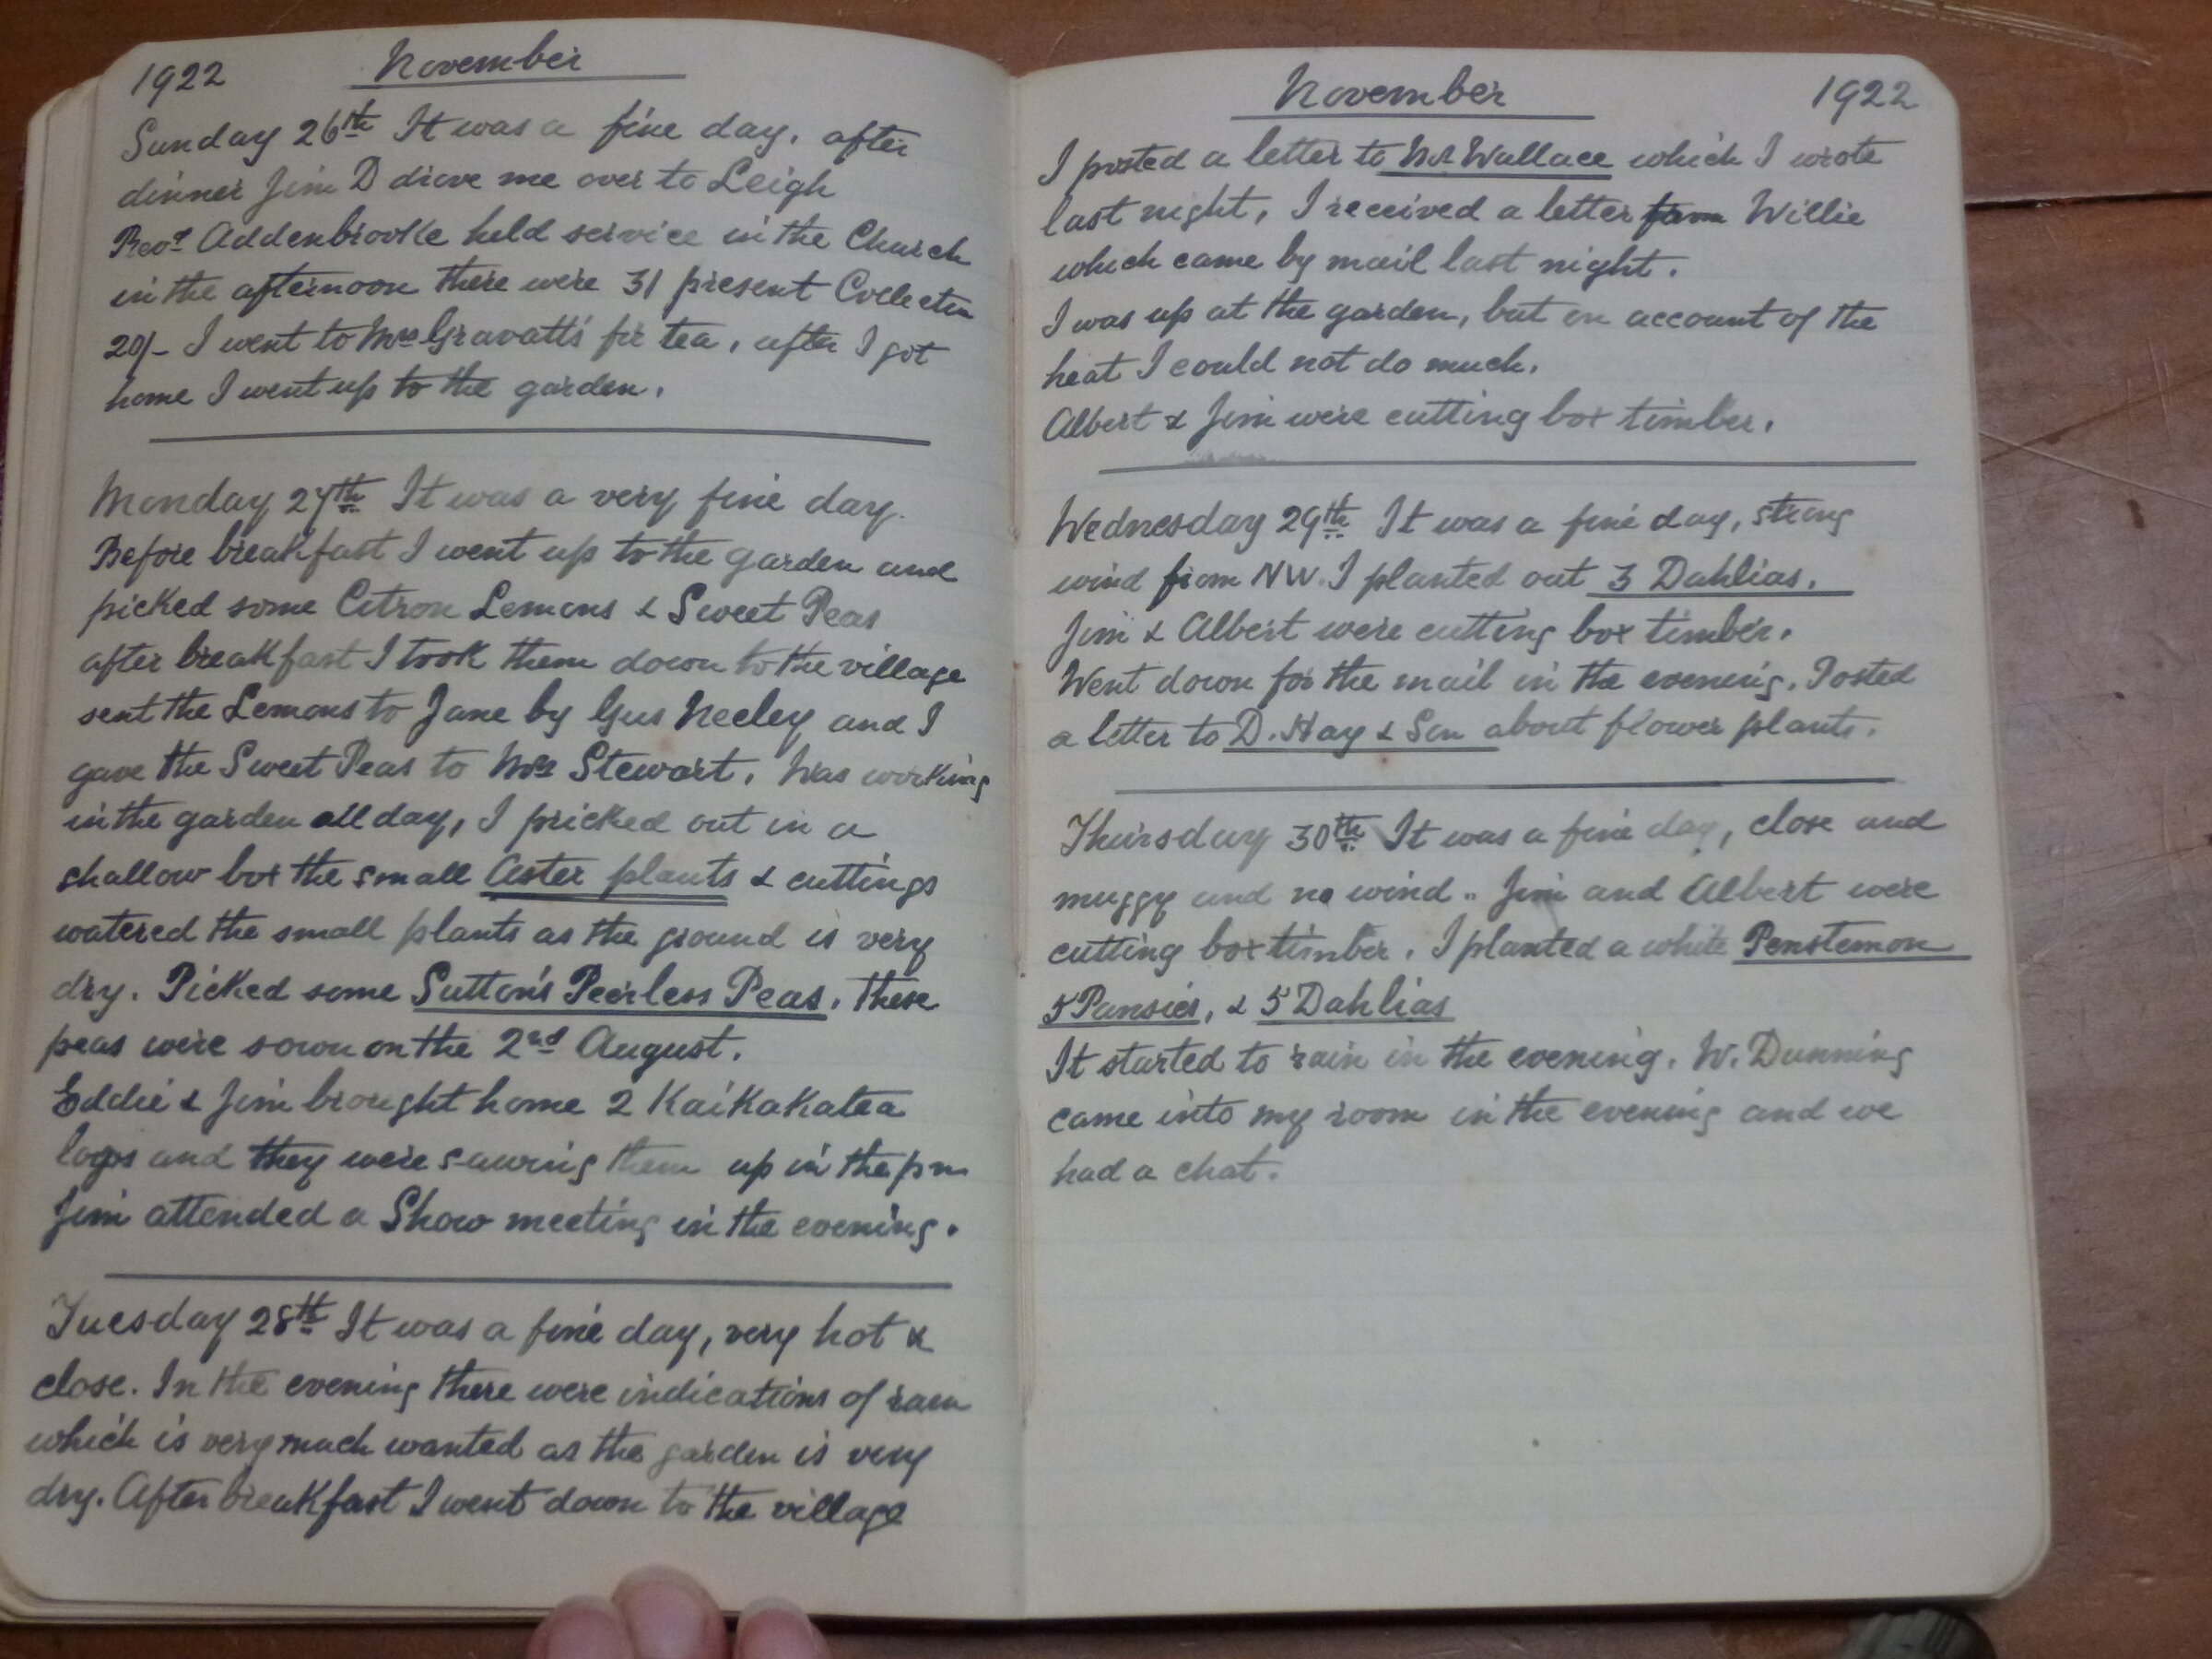 1922 November
Sunday 26th It was a fine day, after
dinner Jim D drove me over to Leigh
Revd Addenbrooke held service in the Church
in the afternoon there were 31 present Collectin
20/- I went to Mrs Gravatt's for tea, after I got
home I went up to the garden.
Monday 27th It was a very fine day.
Before breakfast I went up to the garden and
picked some Citron Lemons & Sweet Peas
after breakfast I took them down to the village
sent the Lemons to Jane by Gus Neeley and I
gave the Sweet Peas to Mrs Stewart. Was working
in the garden all day, I pricked out in a
shallow box the small Aster plants & cuttings
watered the small plants as the ground is very
dry. Picked some Sutton's Peerless Peas. These
peas were sown on the 2nd August.
Eddie & Jim brought home 2 Kaikakatea
logs and they were sawing them up in the pm
Jim attended a Show meeting in the evening.
Tuesday 28th It was a fine day, very hot &
close. In the evening there were indications of rain
which is very much wanted as the garden is very
dry. After breakfast I went down to the village
November 1922
I posted a letter to Mr Wallace which I wrote
last night, I received a letter from Willie
which came by mail last night.
I was up at the garden, but on account of the
heat I could not do much.
Albert & Jim were cutting box timber.
Wednesday 29th It was a fine day, strong
wind from NW. I planted out 3 Dahlias.
Jim & Albert were cutting box timber.
Went down for the mail in the evening. Posted
a letter to D. Hay & Son about flower plants.
Thursday 30th It was a fine day, close and
muggy and no wind.. Jim and Albert were
cutting box timber. I planted a white Penstemon
5 Pansies, & 5 Dahlias
It started to rain in the evening. W. Dunning
came into my room in the evening and we
had a chat.